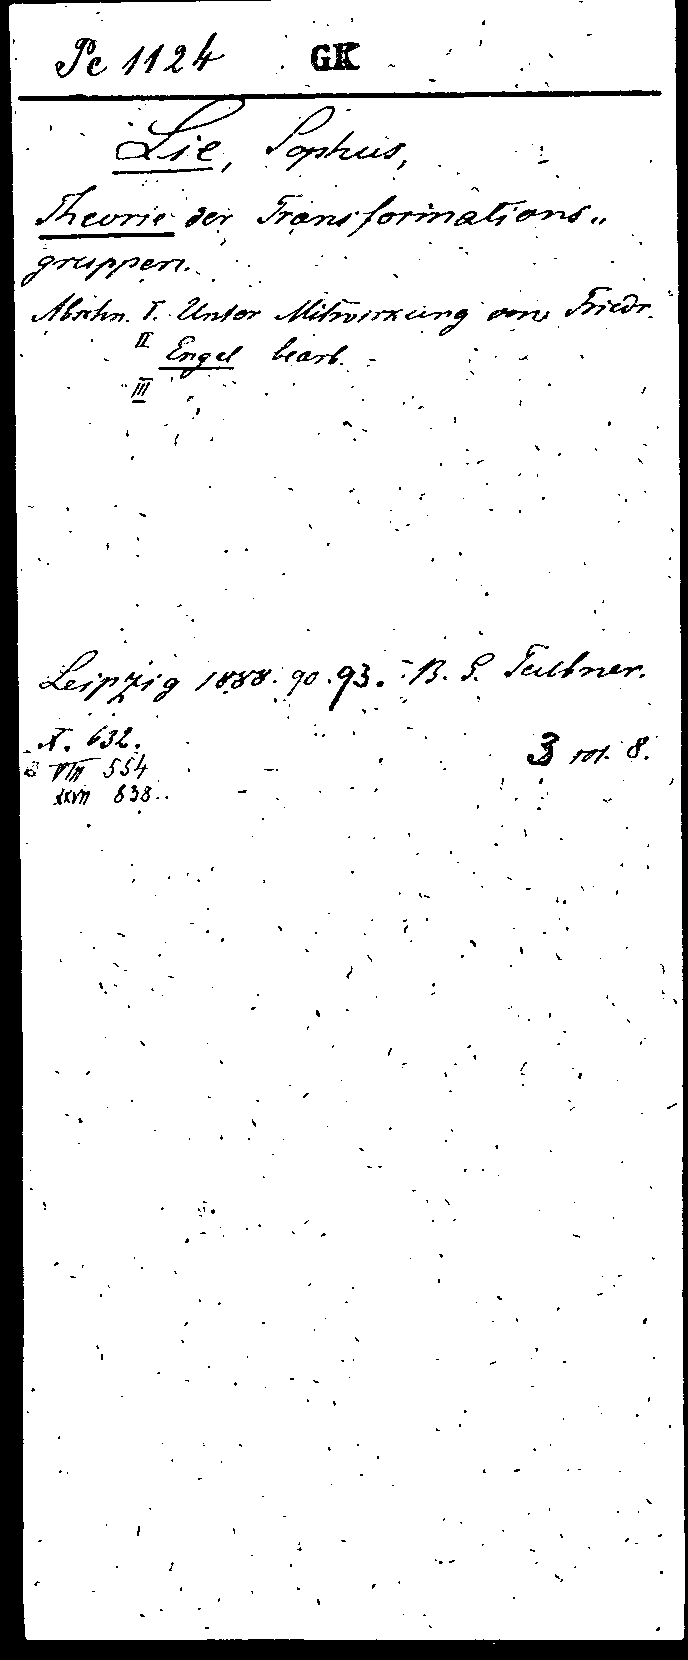 Pc 1124 GK
Lie, Sophus,
Theorie der Transformations„
gruppen.
Abschn. I. Unter Mitwirkung von Friedr.
II Engel bearb.
" III "
Leipzig 1888. 90. 93. B. G. Teubner.
X. 632.
VIII 554 3 vol. 8.
XXVII 838.